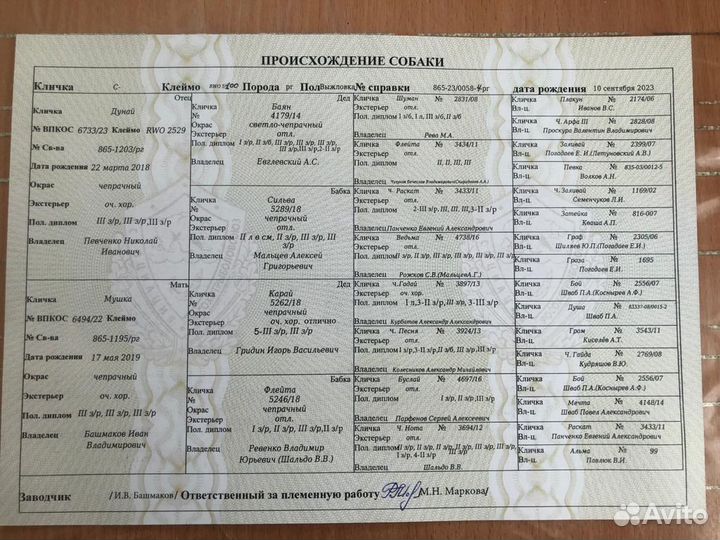 ПРОИСХОЖДЕНИЕ СОБАКИ
Кличка С- Клеймо 100 Порода рг Пол Выжловка № справки 865-23/0058- рг дата рождения 10 сентября 2023
Отец
Кличка Дунай
№ ВПКОС 6733/23 Клеймо RWO 2529
№ Св-ва 865-1203/рг
Дата рождения 22 марта 2018
Окрас чепрачный
Экстерьер оч. хор.
Пол. диплом III з/р, III з/р,III з/р
Владелец Певченко Николай
Иванович
Мать
Кличка Мушка
№ ВПКОС 6494/22 Клеймо
№ Св-ва 865-1195/рг
Дата рождения 17 мая 2019
Окрас чепрачный
Экстерьер оч. хор.
Пол. диплом III з/р, III з/р, III з/р
Владелец Башмаков Иван
Владимирович
Дед
Кличка Баян
№ 4179/14
Окрас светло-чепрачный
Экстерьер отл.
Пол. диплом I з/р, II з/р, III з/р, III з/р, III з/р
Владелец Евглевский А.С.
Бабка
Кличка Сильва
№ 5289/18
Окрас чепрачный
Экстерьер отл.
Пол. диплом II л в см, II з/р, III з/р, III
з/р
Владелец Мальцев Алексей
Григорьевич
Дед
Кличка Карай
№ 5262/18
Окрас чепрачный
Экстерьер оч. хор. отлично
Пол. диплом 5-III з/р, III з/р
Владелец Гридин Игорь Васильевич
Бабка
Кличка Флейта
№ 5246/18
Окрас чепрачный
Экстерьер отл.
Пол. диплом I з/р, II з/р, III з/р, III з/р
Владелец Ревенко Владимир
Юрьевич (Шальдо В.В.)
Кличка Шуман № 2831/08
Экстерьер отл.
Пол. диплом
Владелец Рева М.А.
Кличка Флейта № 3434/11
Экстерьер отл.
Пол. диплом II, II, III, III
Владелец
Кличка Ч. Раскат № 3433/11
Экстерьер отл.
Пол. диплом 2-III з/р, III, III,3-II з/р
Владелец Панченко Евгений Александрович
Кличка Ведьма № 4738/16
Экстерьер отл.
Пол. диплом
Владелец Рожков С.В.(МальцевА.Г.)
Кличка Ч.Гадай № 3897/13
Экстерьер оч. хор.
Пол. диплом I л,3-II з/р,III з/р, 3-III з/р
Владелец Курбатов Александр Александрович
Кличка Ч. Песня № 3924/13
Экстерьер отл.
Пол. диплом I з/р,3-II з/р,II з/б,II з/р,III з/р
Владелец Колесников Александр Михайлович
Кличка Буслай № 4697/16
Экстерьер отл.
Пол. диплом I з/р, II з/р,III з/р
Владелец Парфенов Сергей Алексеевич
Кличка Ч. Нота № 3694/12
Экстерьер отл.
Пол. диплом
I з/р, 4-II з/р
Владелец Шальдо В.В.
Кличка Плакун № 2174/06
Вл-ц. Иванов В.С.
Кличка Ч. Арфа III № 2828/08
Вл-ц. Проскура Валентин Владимирович
Кличка Заливай № 2399/07
Вл-ц. Погодаев Е.И.(Петуновский А.В.)
Кличка Певка № 835-03/0012-5
Вл-ц. Волков А.Н.
Кличка Ч. Заливай № 1169/02
Вл-ц. Семенчуков Л.И.
Кличка Затейка № 816-007
Вл-ц. Кваша А.П.
Кличка Граф № 2305/06
Вл-ц. Шиляев Ю.П.(Погодаев Е.И.)
Кличка Гроза № 1695
Вл-ц. Погодаев Е.И.
Кличка Бой № 2556/07
Вл-ц. Шваб П.А.(Коснырев А.Ф.)
Кличка Душа № 83337-08/0015-2
Вл-ц. Шваб П.А.
Кличка Гром № 3543/11
Вл-ц. Киселёв А.Т.
Кличка Ч. Гайда № 2769/08
Вл-ц. Кудряшов В.Ю.
Кличка Бой № 2556/07
Вл-ц. Шваб П.А.(Коснырев А.Ф.)
Кличка Мечта № 4148/14
Вл-ц. Шваб Павел Александрович
Кличка Раскат № 3433/11
Вл-ц. Панченко Евгений Александрович
Кличка Альма № 99
Вл-ц. Павлюк В.И.
Заводчик /И.В. Башмаков/ Ответственный за племенную работу /М.Н. Маркова/
Avito